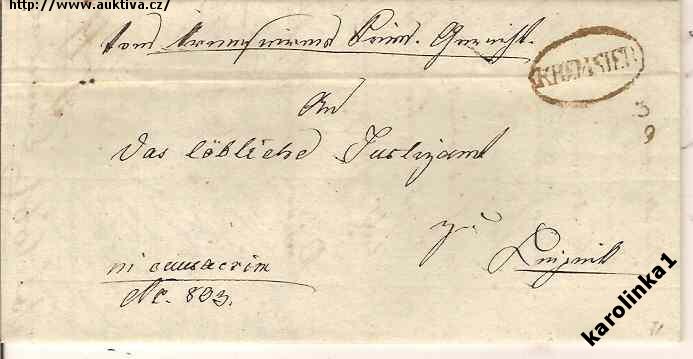 http://www.auktiva.cz/
vom Kremsierer Crim. Gericht.
KREMSIER
An
3
9
das löbliche Justizamt
zu
Leipnik
in causa crim
No. 803.
karolinka1